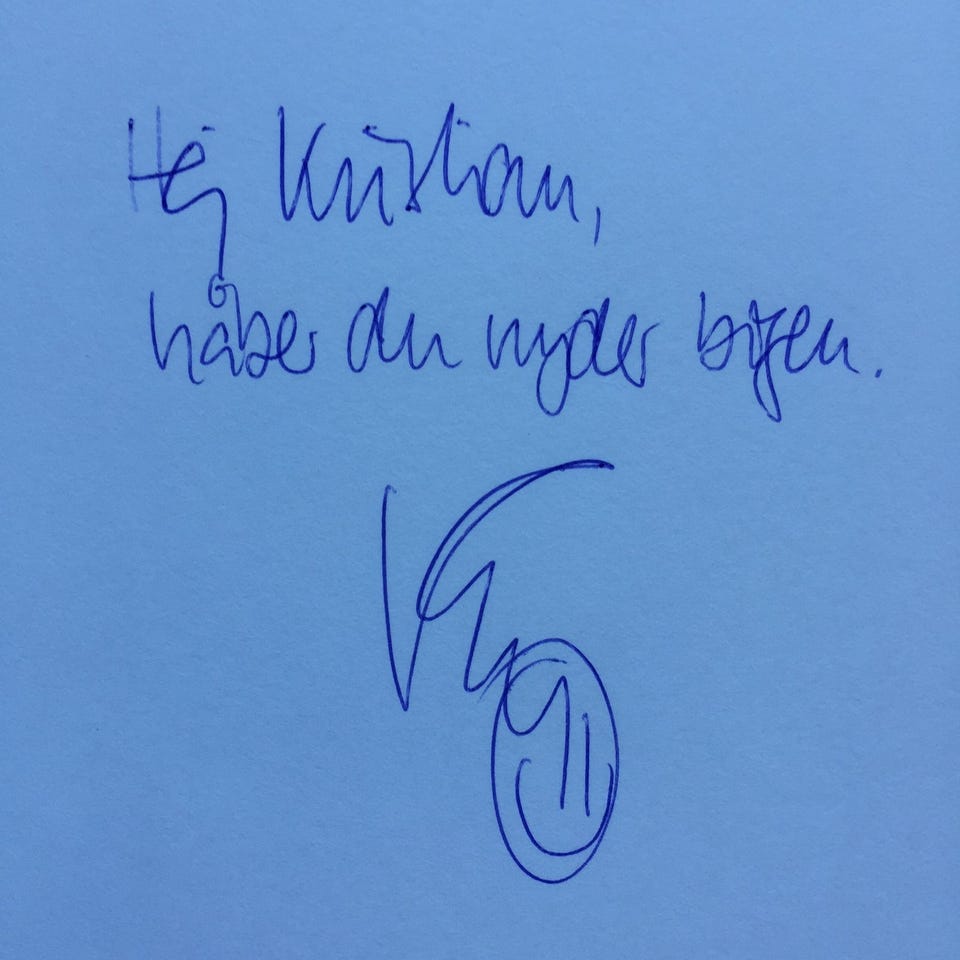 Hej Kristian,
håber du nyder bogen.